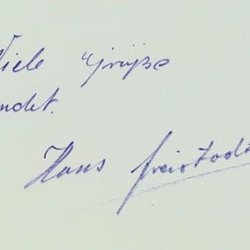 Viele Grüße
ndet.
Hans Freistadt